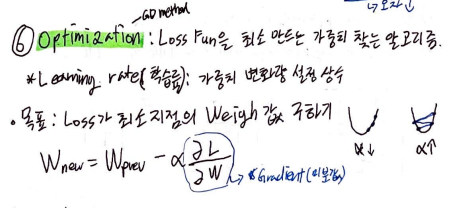 ↳오차↓
GD method
⑥ Optimization : Loss Fun을 최소 만드는 가중치 찾는 알고리즘.
* Learning rate(학습률): 가중치 변화량 설정 상수
• 목표 : Loss가 최소지점의 Weigh 값 구하기
W new = W prev - α ∂L/∂W → * Gradient (미분값)
α↓ α↑